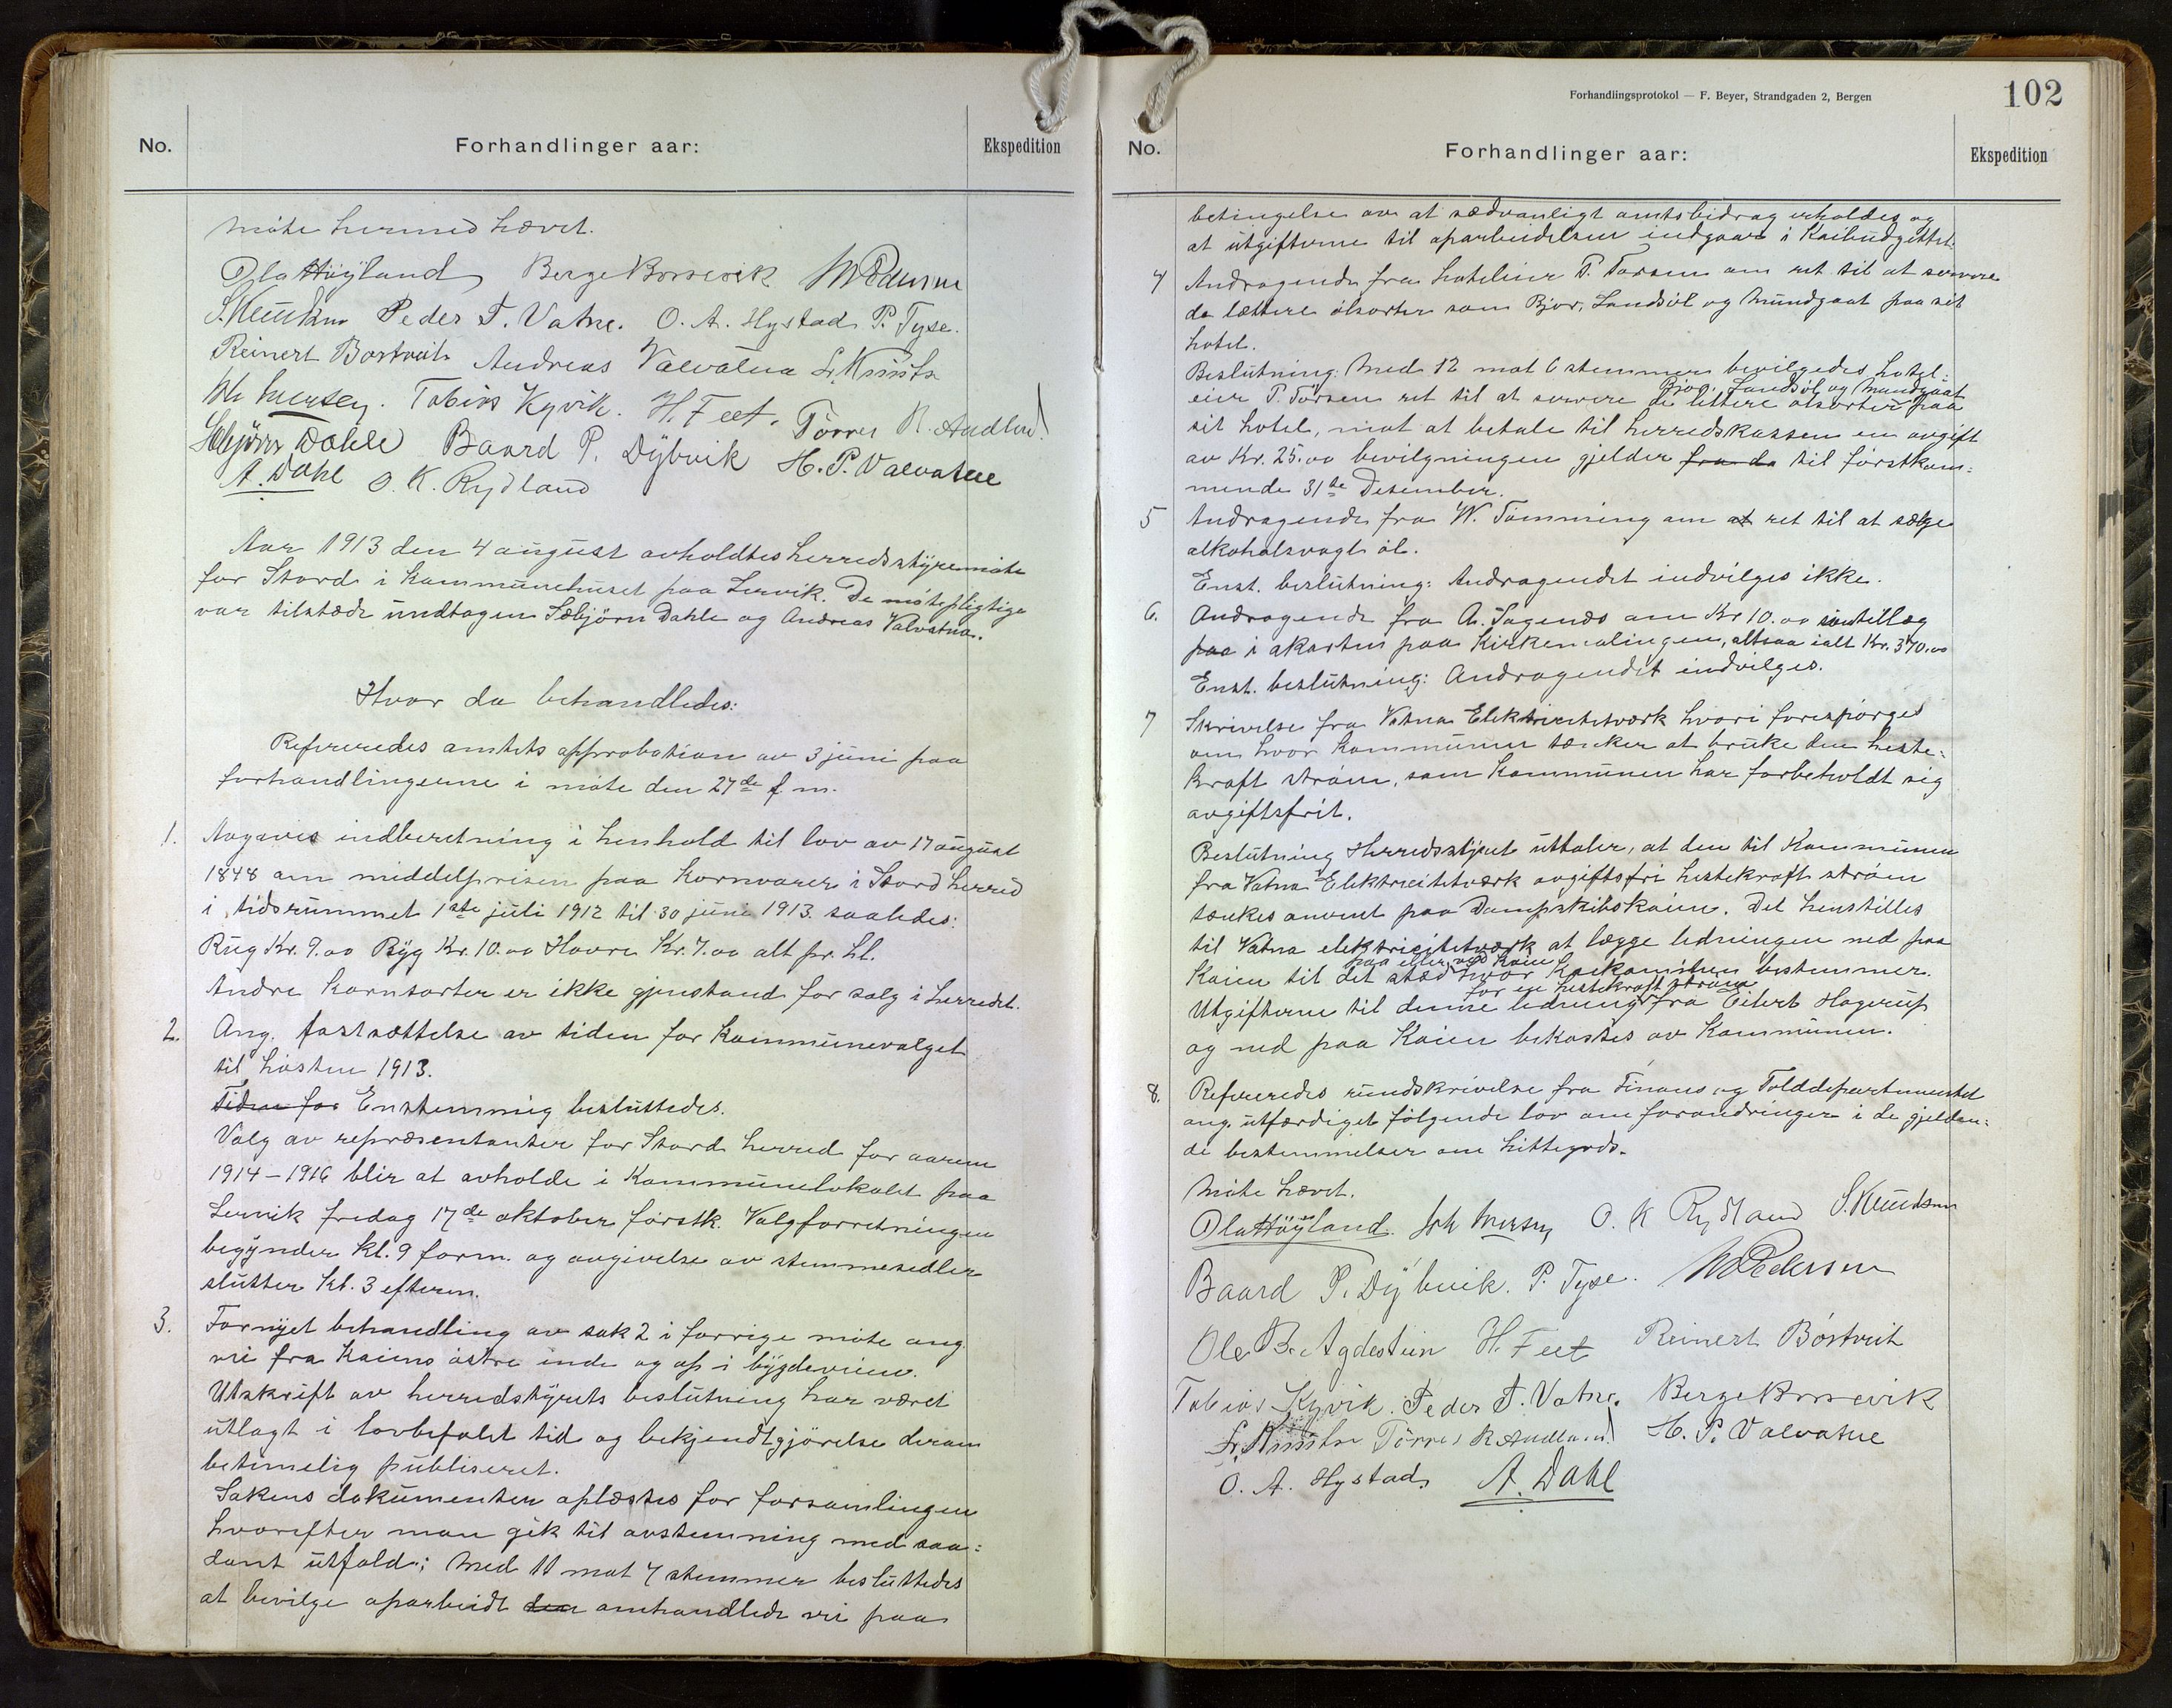 No.
Forhandlinger aar:
Ekspedition
Møte hermed hævet.
Ola Høyland Berge Børsevik M Pedersen
S. Knudsen Peder T. Vatne. O. A. Hystad P. Tyse.
Reinert Bostveit Andreas Valvatna
Tobias Kyvik. H. Feet. Tørres R. Aadland
Sæbjörn Dahle Baard P. Dÿbvik H. P. Valvatne
A. Dahl O. K. Rydland
Aar 1913 den 4 august avholdtes herredsstyremøte
for Stord i kommunehuset paa Lervik. De møtepligtige
var tilstæde undtagen Sæbjørn Dahle og Andreas Valvatna.
Hvor da behandledes:
Refereredes amtets approbation av 3 juni paa
forhandlingerne i møte den 27de f. m.
1. Avgaves indberetning i henhold til lov av 17 august
1848 om middelprisen paa kornvarer i Stord herred
i tidsrummet 1ste juli 1912 til 30 juni 1913 saaledes:
Rug Kr. 9.00 Byg Kr. 10.00 Havre Kr. 7.00 alt pr. hl.
Andre kornsorter er ikke gjenstand for salg i herredet.
2. Ang. fastsættelse av tiden for kommunevalget
til høsten 1913.
Tiden for Enstemmig besluttedes.
Valg av repræsentanter for Stord herred for aarene
1914–1916 blir at avholde i kommunelokalet paa
Lervik fredag 17de oktober førstk. Valgforretningen
begynder kl. 9 form. og avgivelse av stemmesedler
slutter kl. 3 efterm.
3. Fornyet behandling av sak 2 i forrige møte ang.
vei fra kaiens østre ende og op i bygdeveien.
Utskrift av herredstyrets beslutning har været
utlagt i lovbefalet tid og bekjendtgjørelse derom
betimelig publiseret.
Sakens dokumenter oplæstes for forsamlingen
hvorefter man gik til avstemning med saa=
dant utfald: Med 11 mot 7 stemmer besluttedes
at bevilge oparbeidt den omhandlede vei paa
Forhandlingsprotokol — F. Beyer, Strandgaden 2, Bergen
102
No.
Forhandlinger aar:
Ekspedition
betingelse av at sædvanligt amtsbidrag erholdes og
at utgifterne til oparbeidelsen indgaar i Kaibudgettet.
4 Andragende fra hoteleier P. Torsen om ret til at servere
de lættere ølsorter som Bjor, Landsøl og Mundgaat paa sit
hotel.
Beslutning: Med 12 mot 6 stemmer bevilgedes hotel=
eier P. Torsen ret til at servere de lettere ølsorter paa
Bjor, Landsøl og Mundgaat
sit hotel, mot at betale til herredskassen en avgift
av Kr. 25.00 bevilgningen gjelder fra da til førstkom=
mende 31te Desember.
5 Andragende fra W. Tømming om at ret til at sælge
alkoholsvagt øl.
Enst. beslutning: Andragendet indvilges ikke.
6. Andragende fra A. Sagends om Kr 10.00 tillæg
paa i akorten paa Kirkemalingen, altsaa ialt Kr. 370.00
Enst. beslutning: Andragendet indvilges.
7 Skrivelse fra Vatna Elektricitetværk hvori forespørges
om hvor kommunen tænker at bruke den heste=
kraft strøm, som kommunen har forbeholdt sig
avgiftsfrit.
Beslutning Herredsstyret uttaler, at den til Kommunen
fra Vatna Elektricitetværk avgiftsfri hestekraft strøm
tænkes anvent paa Dampskibskaien. Det henstilles
til Vatna elektricitetværk at lægge ledningen ned paa
paa eller ved kaien
Kaien til det sted hvor Kaikomiteen bestemmer.
for en hestekraft strøm
Utgifterne til denne ledning fra Eilert Hagerup
og ned paa Kaien bekostes av Kommunen.
8. Refereredes rundskrivelse fra Finans og Tolddepartementet
ang. utfærdiget følgende lov om forandringer i de gjelden=
de bestemmelser om hittegods.
Møte hævet.
Ola Høyland O. K Rydland S. Knudsen
Baard P. Dÿbvik. P. Tyse. M Pedersen
Ole B. Agdestein H. Feet Reinert Bóstveit
Tobias Kyvik. Peder T. Vatne. Berge Børsevik
Tørres R Aadland H. P. Valvatne
O. A. Hystad. A. Dahl